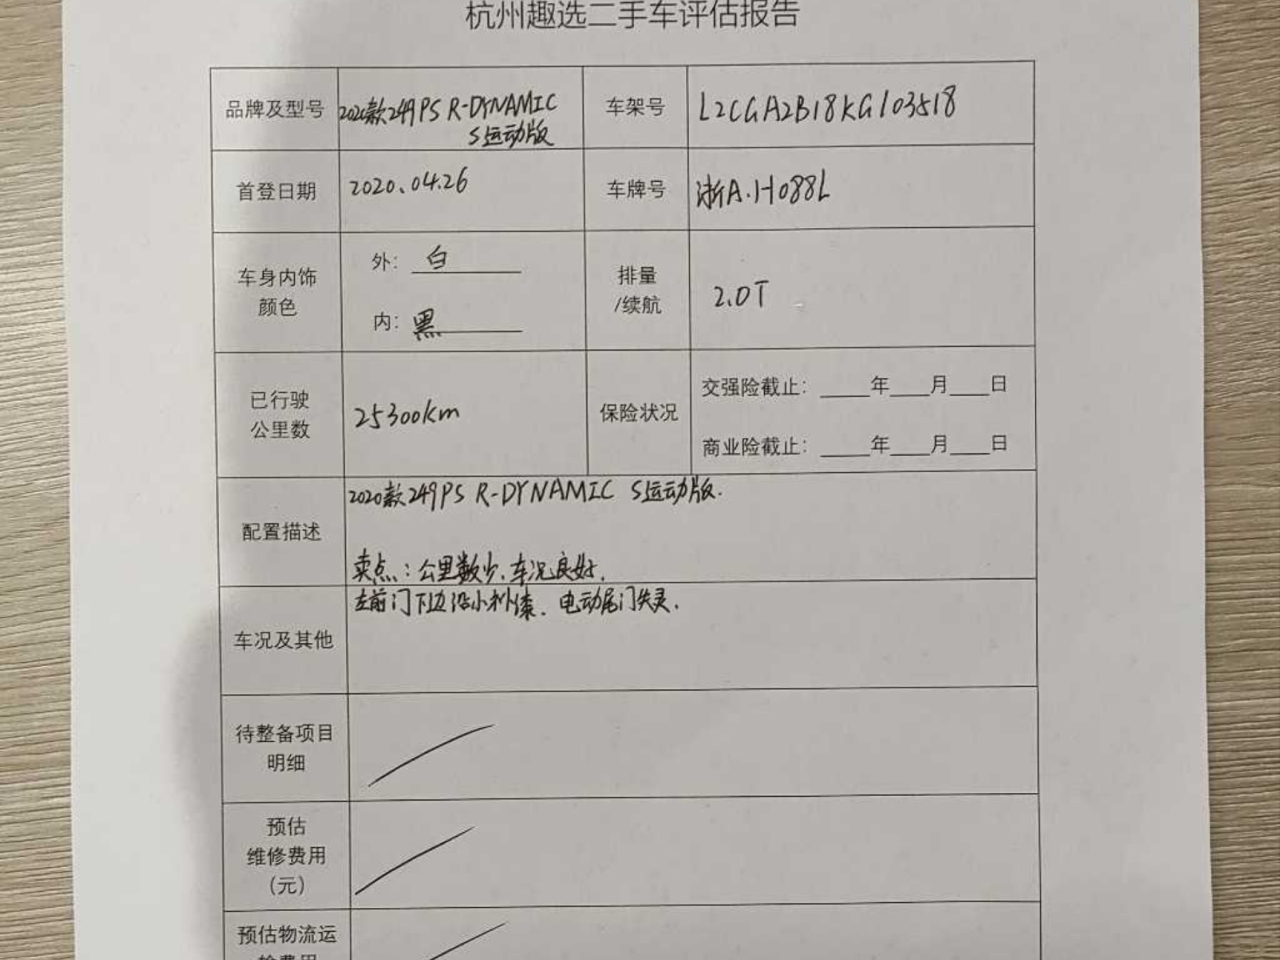 杭州趣选二手车评估报告
品牌及型号 2020款249PS R-DYNAMIC
S运动版
车架号 L2CGA2B18KG103518
首登日期 2020.04.26 车牌号 浙A·H088L
车身内饰
颜色
外: 白
内: 黑
排量
/续航
2.0T
已行驶
公里数
25300km
保险状况
交强险截止: ____年___月___日
商业险截止: ____年___月___日
配置描述
2020款249PS R-DYNAMIC S运动版.
卖点: 公里数少、车况良好.
车况及其他
左前门下边沿小补漆、电动尾门失灵.
待整备项目
明细
预估
维修费用
(元)
预估物流运
输费用